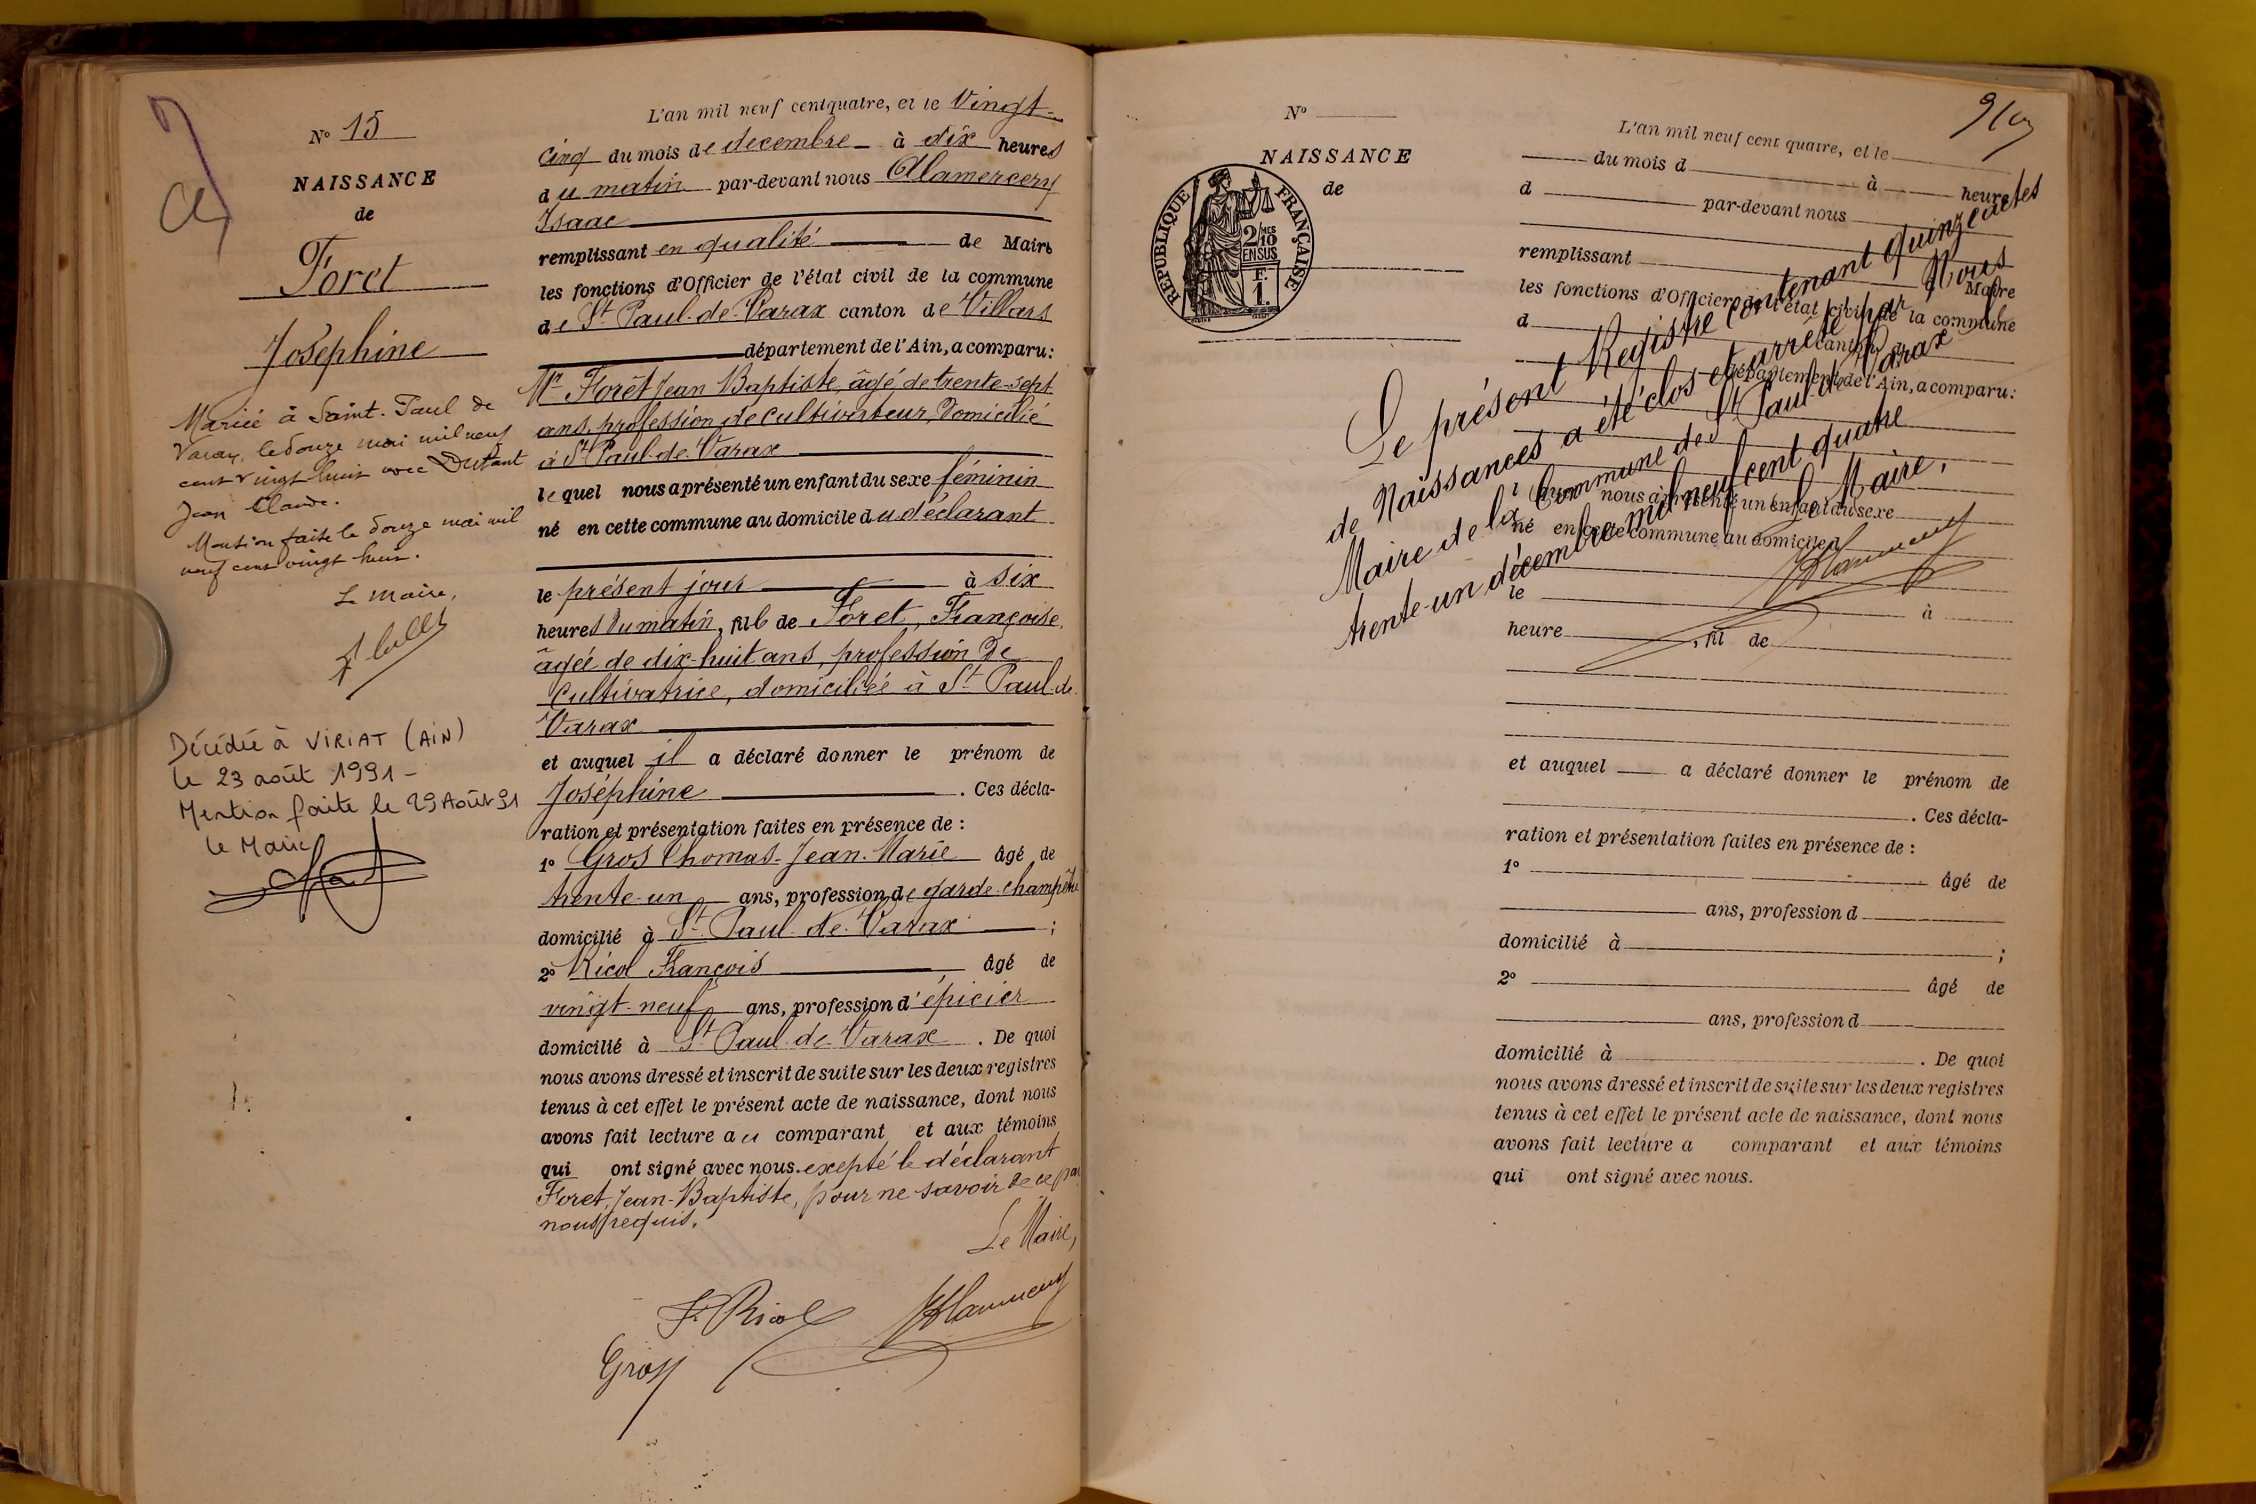 N° 15
NAISSANCE
de
Foret
Joséphine
Mariée à Saint-Paul de
Varax, le douze mai mil neuf
cent vingt huit avec Dutant
Jean Claude.
Mention faite le douze mai mil
neuf cent vingt huit.
Le maire,
Décédée à VIRIAT (AIN)
le 23 août 1991 -
Mention faite le 29 Août 91
Le Maire
L'an mil neuf cent quatre, et le Vingt-
cinq du mois de decembre à dix heures
du matin par-devant nous Alamercery
Isaac
remplissant en qualité de Maire
les fonctions d'Officier de l'état civil de la commune
de St Paul-de-Varax canton de Villars
département de l'Ain, a comparu:
Mr Forêt Jean Baptiste, âgé de trente-sept
ans, profession de cultivateur, domicilié
à St Paul-de-Varax
lequel nous a présenté un enfant du sexe féminin
né en cette commune au domicile du déclarant
le présent jour à six
heures du matin, fils de Foret, Françoise,
âgée de dix-huit ans, profession de
cultivatrice, domiciliée à St Paul-de-
Varax
et auquel il a déclaré donner le prénom de
Joséphine. Ces décla-
ration et présentation faites en présence de :
1° Gros Thomas-Jean-Marie âgé de
trente-un ans, profession de garde-champêtre
domicilié à St Paul-de-Varax ;
2° Ricol François âgé de
vingt-neuf ans, profession d'épicier
domicilié à St Paul-de-Varax. De quoi
nous avons dressé et inscrit de suite sur les deux registres
tenus à cet effet le présent acte de naissance, dont nous
avons fait lecture au comparant et aux témoins
qui ont signé avec nous. excepté le déclarant
Foret, Jean-Baptiste, pour ne savoir de ce par
nous requis.
Le Maire,
F. Ricol
Gros
N°
NAISSANCE
de
RÉPUBLIQUE FRANÇAISE
2/10 EN SUS
F.
1.
L'an mil neuf cent quatre, et le
du mois d à heure
d par-devant nous
remplissant Maire
les fonctions d'Officier de l'état civil de la commune
d canton d
département de l'Ain, a comparu:
Le présent Registre contenant quinze actes
de Naissances a été clos et arrêté par Nous
Maire de la Commune de St Paul-de-Varax
trente-un décembre mil neuf cent quatre
Le Maire,
nous a présenté un enfant du sexe
né en cette commune au domicile d
le à
heure , fil de
et auquel a déclaré donner le prénom de
. Ces décla-
ration et présentation faites en présence de :
1° âgé de
ans, profession d
domicilié à ;
2° âgé de
ans, profession d
domicilié à . De quoi
nous avons dressé et inscrit de suite sur les deux registres
tenus à cet effet le présent acte de naissance, dont nous
avons fait lecture a comparant et aux témoins
qui ont signé avec nous.